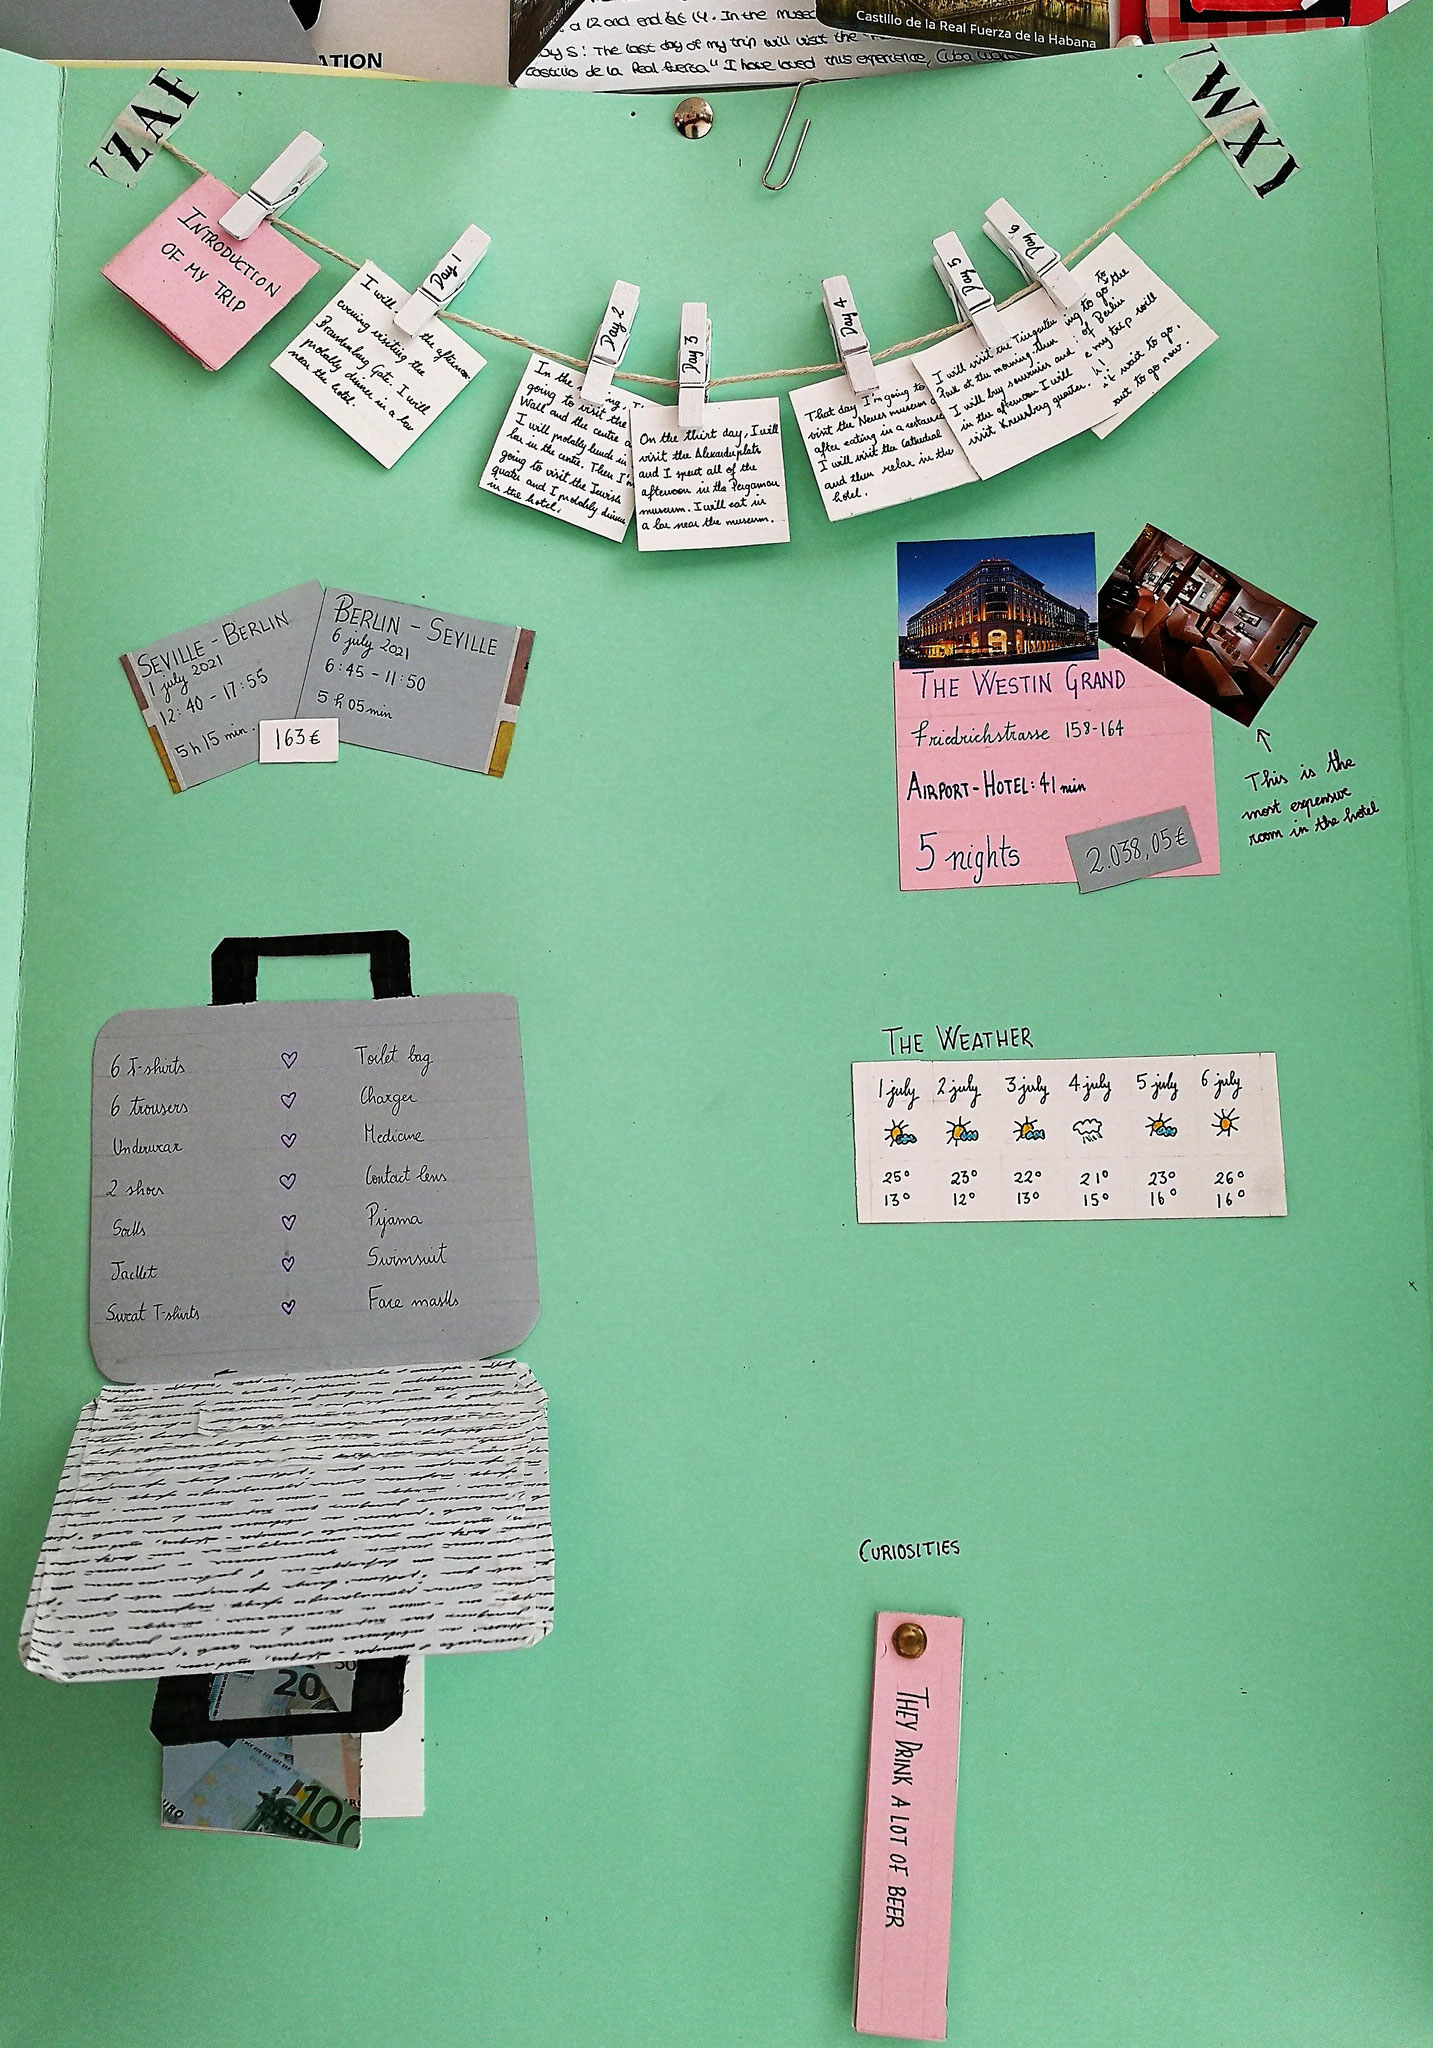 a 12 and end at 14. In the
Day 5: The last day of my trip will visit the
Castillo de la Real fuerza" I have loved this experience, Cuba
Castillo de la Real Fuerza de la Habana
ATION
ZAF
WXY
INTRODUCTION
OF MY TRIP
Day 1
I will the afternoon
evening visiting the
Brandenburg Gate. I will
probably dinner in a bar
near the hotel.
Day 2
In the
going to visit the
Wall and the centre
I will probally lunch in
bar in the centre. Then I'm
going to visit the Jewish
quater and I probably dinner
in the hotel.
Day 3
On the thirt day, I will
visit the Alexanderplatz
and I spent all of the
afternoon in the Pergamon
museum. I will eat in
a bar near the museum.
Day 4
That day I'm going to
visit the Neues museum
after eating in a restaurant
I will visit the Cathedral
and then relax in the
hotel.
Day 5
I will visit the Tiergarten
Park at the morning then
I will buy souvenirs and
in the afternoon I will
visit Kreuzberg quarter.
Day 6
to
ing to go the
of Berlin
e my trip will
it wait to go.
out to go now.
SEVILLE - BERLIN
1 july 2021
12:40 - 17:55
5h 15 min.
BERLIN - SEVILLE
6 july 2021
6:45 - 11:50
5 h 05 min
163€
THE WESTIN GRAND
Friedrichstrasse 158-164
AIRPORT - HOTEL: 41 min
5 nights
2.038,05€
This is the
most expensive
room in the hotel
6 T-shirts
6 trousers
Underwear
2 shoes
Socks
Jacket
Sweat T-shirts
Toilet bag
Charger
Medicine
Contact lens
Pijama
Swimsuit
Face masks
THE WEATHER
1 july 2 july 3 july 4 july 5 july 6 july
25° 23° 22° 21° 23° 26°
13° 12° 13° 15° 16° 16°
20
50
100
URO
CURIOSITIES
THEY DRINK A LOT OF BEER